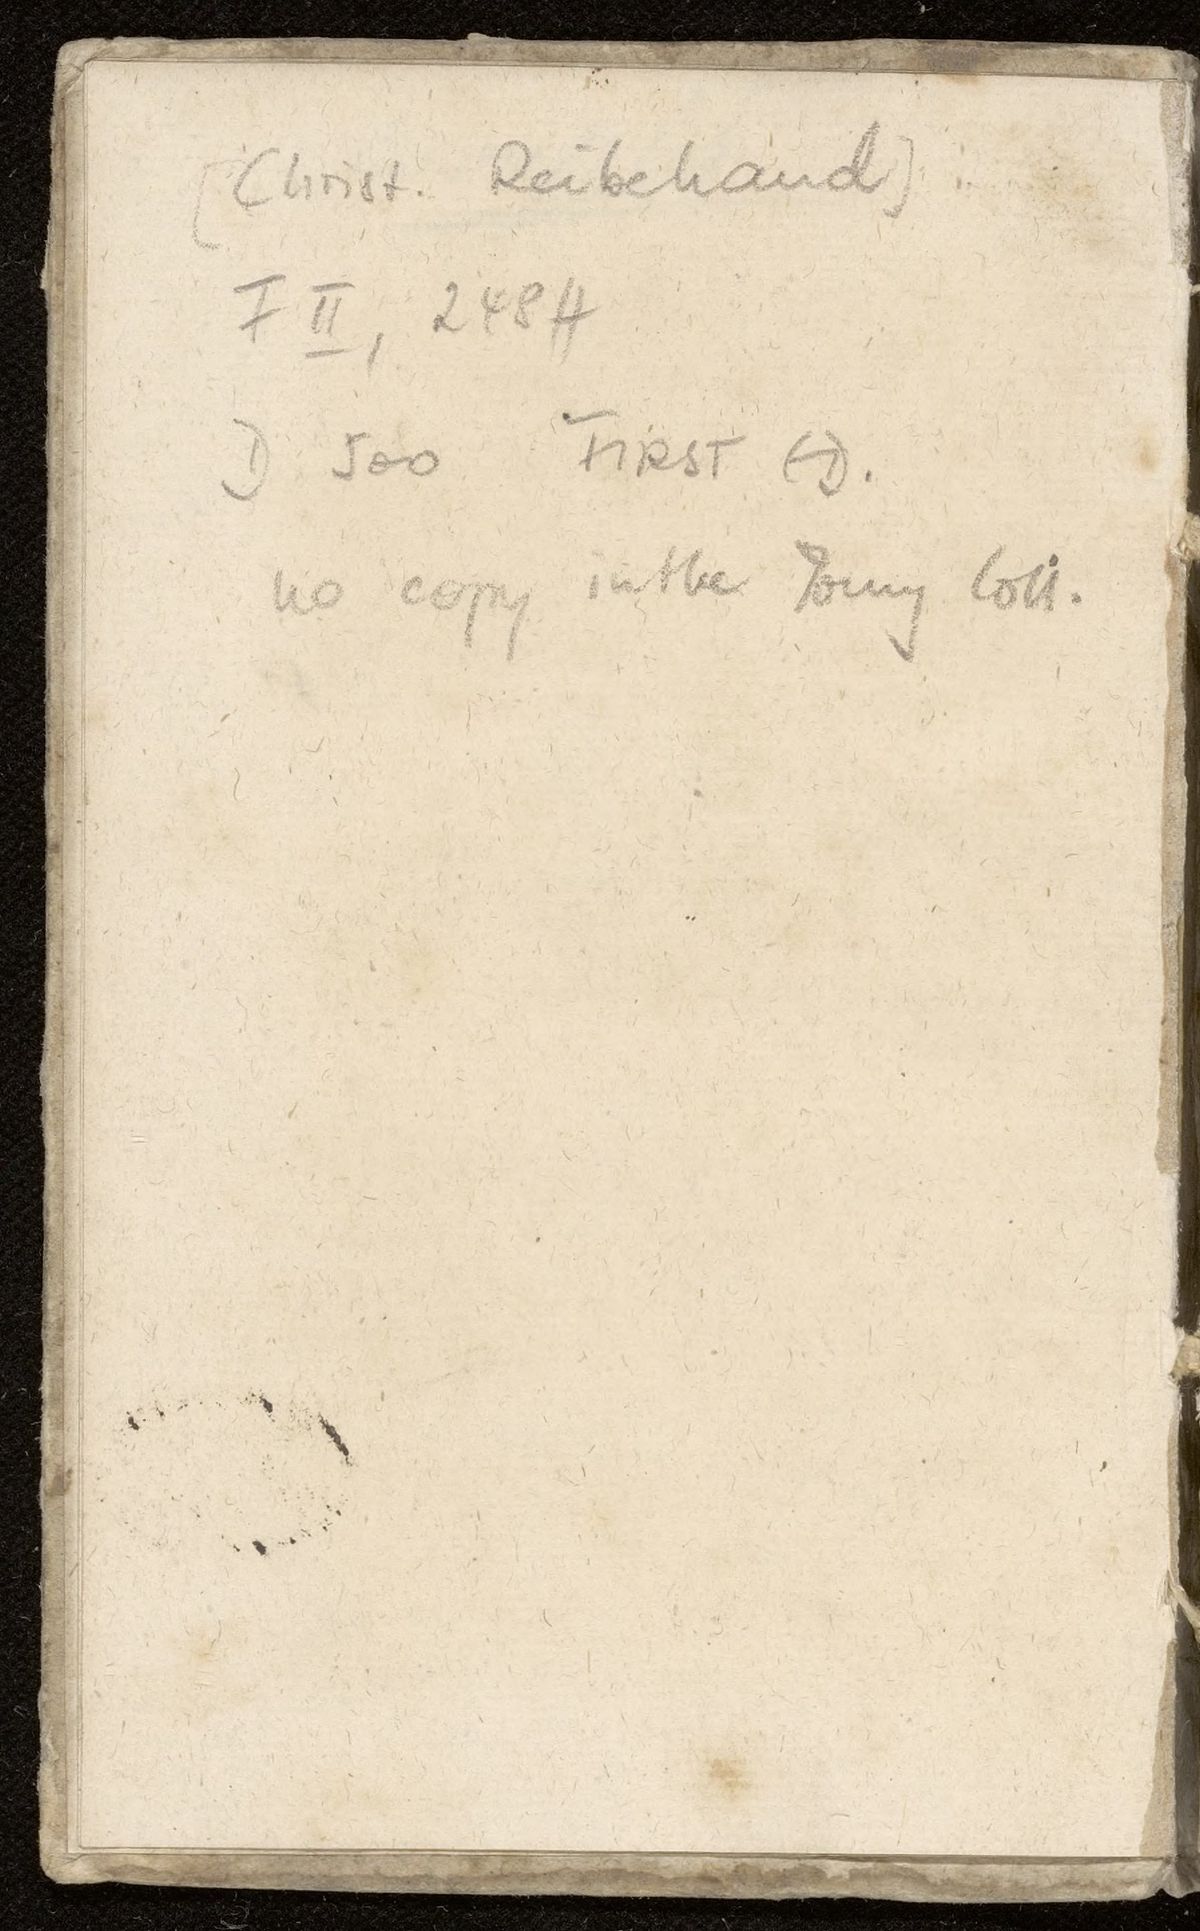 [Christ. Reibehand]
F II, 248 ff
D 500 FIRST (-D).
no copy in the Young Coll.